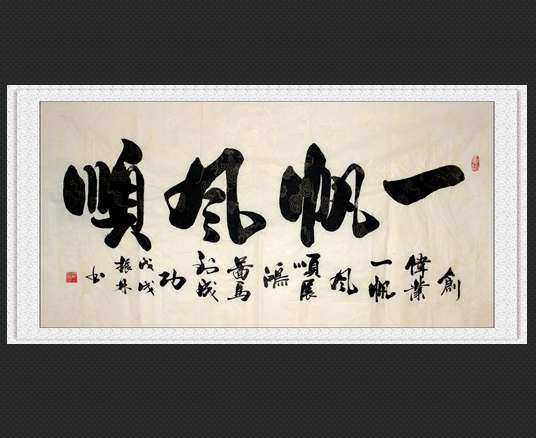 一帆風順
創
偉業
一帆
風
順展
鴻
圖馬
到成
功
戊戌
振林
书